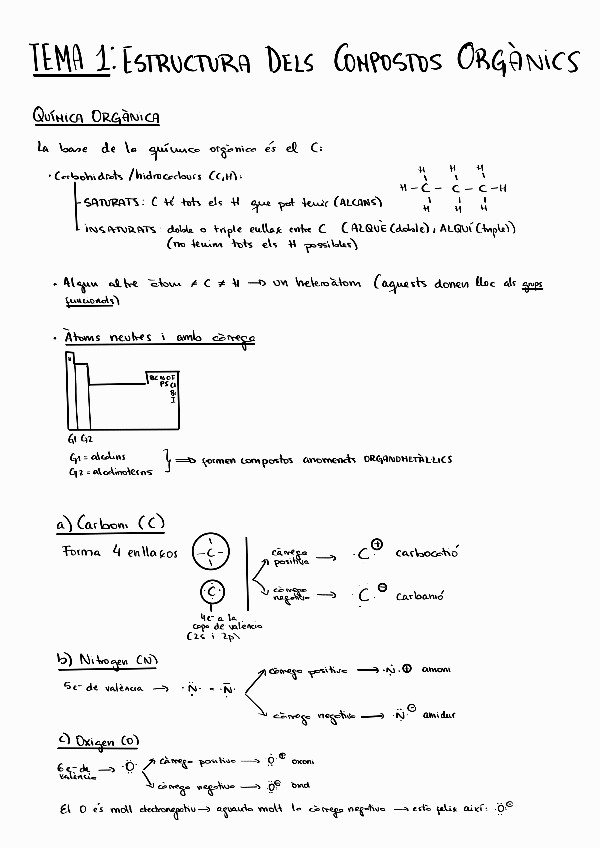 TEMA 1: ESTRUCTURA DELS COMPOSTOS ORGÀNICS
QUÍMICA ORGÀNICA
La base de la química orgànica és el C:
· Carbohidrats / hidrocarburs (C,H):
SATURATS: C té tots els H que pot tenir (ALCANS)
INSATURATS: doble o triple enllaç entre C (ALQUÈ (doble), ALQUÍ (triple))
(no tenim tots els H possibles)
H H H
H - C - C - C - H
H H H
· Algun altre àtom ≠ C ≠ H → un heteroàtom (aquests donen lloc als grups
funcionals)
· Àtoms neutres i amb càrrega
H
B C N O F
P S Cl
Br
I
G1 G2
G1 = alcalins
G2 = alcalinoterris
⇒ formen compostos anomenats ORGANOMETÀL·LICS
a) Carboni (C)
Forma 4 enllaços
-C-
·C·
4e⁻ a la
capa de valència
(2s i 2p)
càrrega
positiva → ·C⊕ carbocatió
càrrega
negativa → ·C⊖ carbanió
b) Nitrogen (N)
5e⁻ de valència → ·N· = ·N·
càrrega positiva → ·N·⊕ amoni
càrrega negativa → ·N⊖ amidur
c) Oxigen (O)
6e⁻ de
valència → ·O·
càrrega positiva → O⊕ oxoni
càrrega negativa → O⊖
El O és molt electronegatiu → aguanta molt la càrrega negativa → està feliç així: O⊖